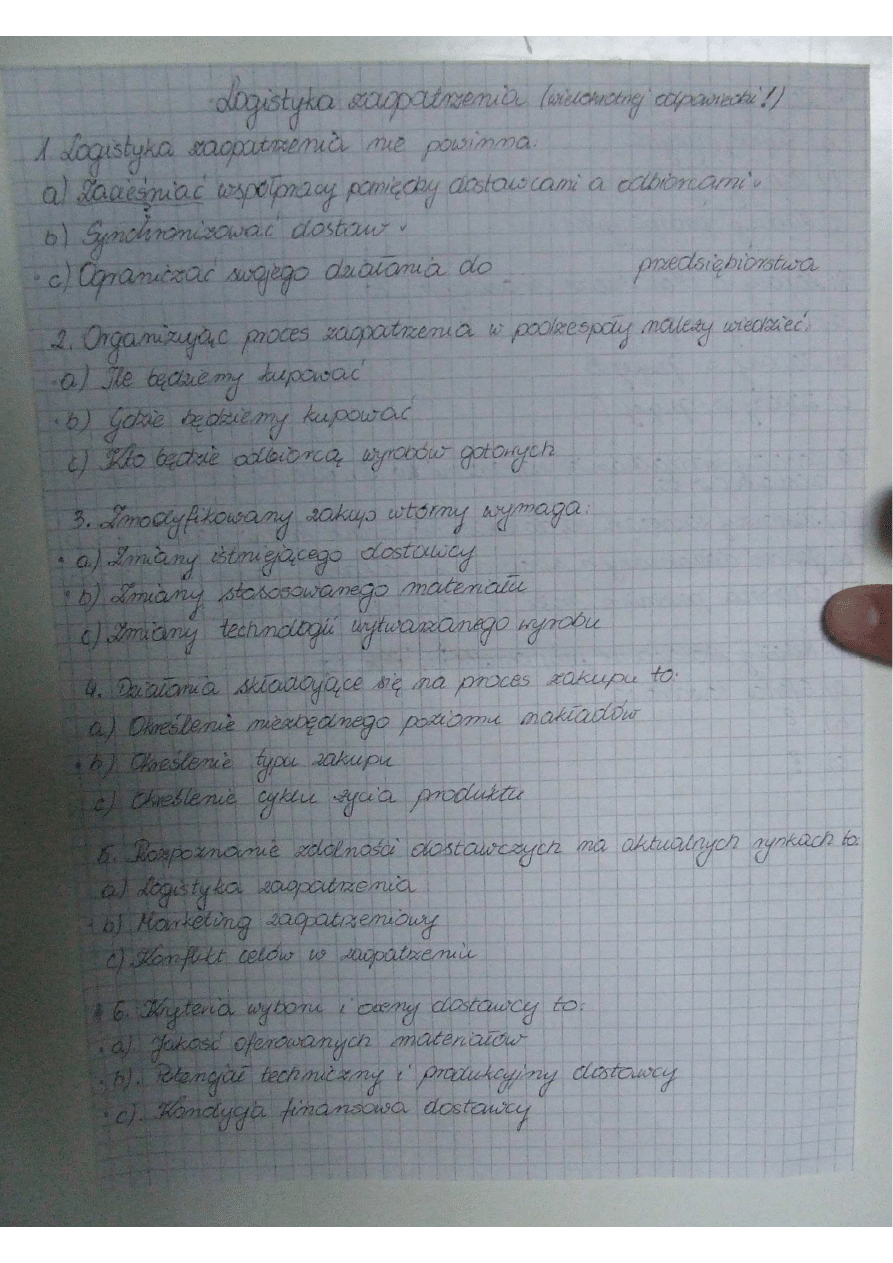 Logistyka zaopatrzenia (wielokrotnej odpowiedzi!)
1. Logistyka zaopatrzenia nie powinna:
a) Zacieśniać współpracy pomiędzy dostawcami a odbiorcami
b) Synchronizować dostaw
c) Ograniczać swojego działania do przedsiębiorstwa
2. Organizując proces zaopatrzenia w podzespoły należy wiedzieć:
a) Ile będziemy kupować
b) Gdzie będziemy kupować
c) Kto będzie odbiorcą wyrobów gotowych
3. Zmodyfikowany zakup wtórny wymaga:
a) Zmiany istniejącego dostawcy
b) Zmiany stososowanego materiału
c) Zmiany technologii wytwarzanego wyrobu
4. Działania składające się na proces zakupu to:
a) Określenie niezbędnego poziomu nakładów
b) Określenie typu zakupu
c) Określenie cyklu życia produktu
5. Rozpoznanie zdolności dostawczych na aktualnych rynkach to:
a) Logistyka zaopatrzenia
b) Marketing zaopatrzeniowy
c) Konflikt celów w zaopatrzeniu
6. Kryteria wyboru i oceny dostawcy to:
a). Jakość oferowanych materiałów
b). Potencjał techniczny i produkcyjny dostawcy
c). Kondycja finansowa dostawcy